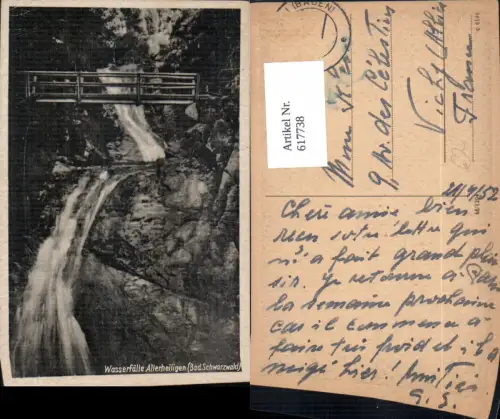 Wasserfälle Allerheiligen (Bad. Schwarzwald)
(BADEN)
Artikel Nr.
617738
9, Av. des Célestins
Vichy (Allier
France
21/9/52
Chère amie bien
reçu votre lettre qui
m'a fait grand plai
sir. Je retourne à Paris
la semaine prochaine
car il commence à
faire très froid et il a
neigé hier! Amitiés
G. S.